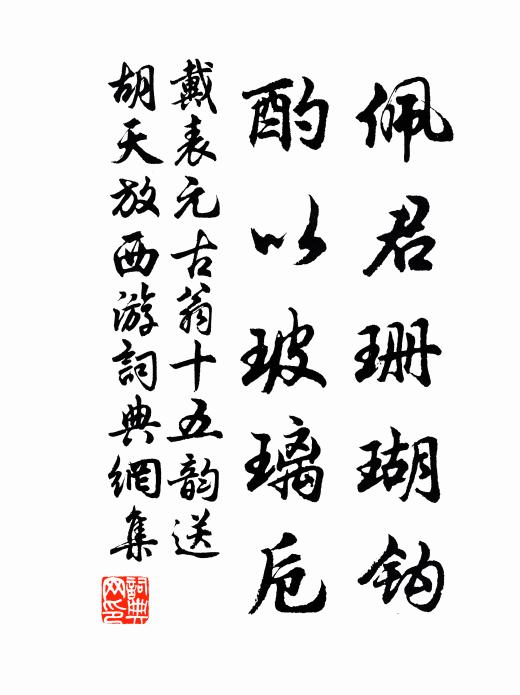 佩君珊瑚鈎
酌以玻璃卮
戴表元古翁十五韵送
胡天放西游詞典網集
詞典網印